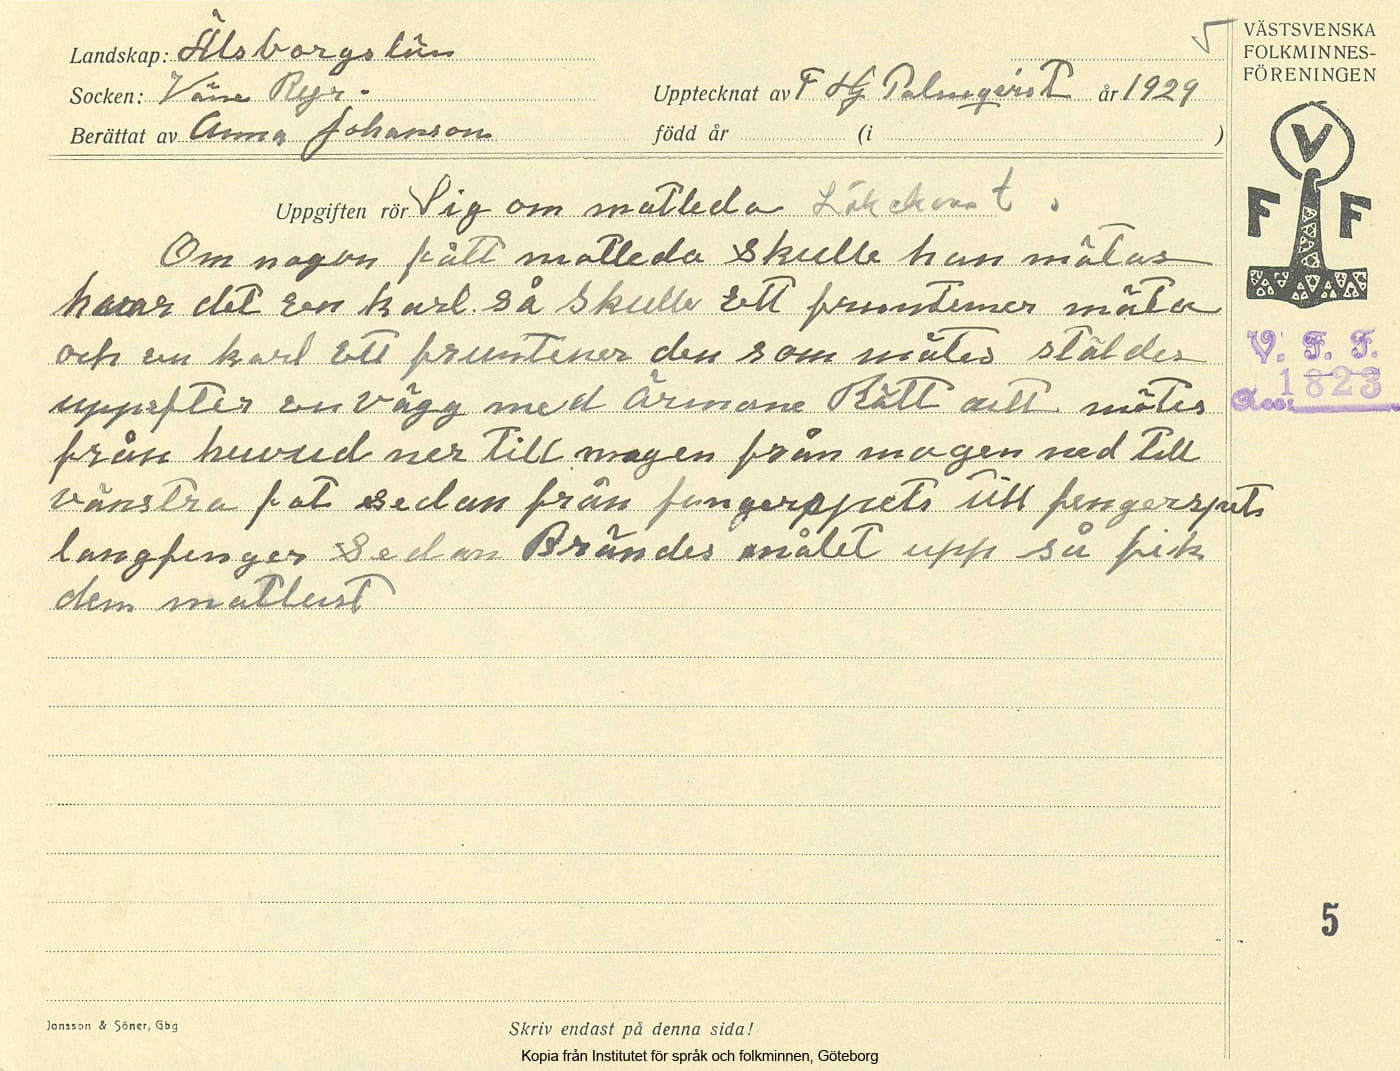 5
VÄSTSVENSKA
FOLKMINNES-
FÖRENINGEN
Landskap: Älsborgslän
Socken: Väne Ryr.
Upptecknat av F Hj Palmqvist år 1929
Berättat av Anna Johanson
född år (i )
V
F F
Uppgiften rör Sig om matleda Läkekonst.
Om nagon fått matleda skulle han mätas
hwar det en karl. så skulle ett fruntimer mäta
och en karl ett fruntener den som mätes stäldes
uppefter en vägg med Ärmane Rätt utt mätes
från huvud ner till magen från magen ned till
vänstra fot sedan från fingerspets till fingerspets
langfenger sedan Brändes målet upp så fik
dem matlust
V. F. F.
Acc: 1823
5
Jonsson & Söner, Gbg
Skriv endast på denna sida!
Kopia från Institutet för språk och folkminnen, Göteborg